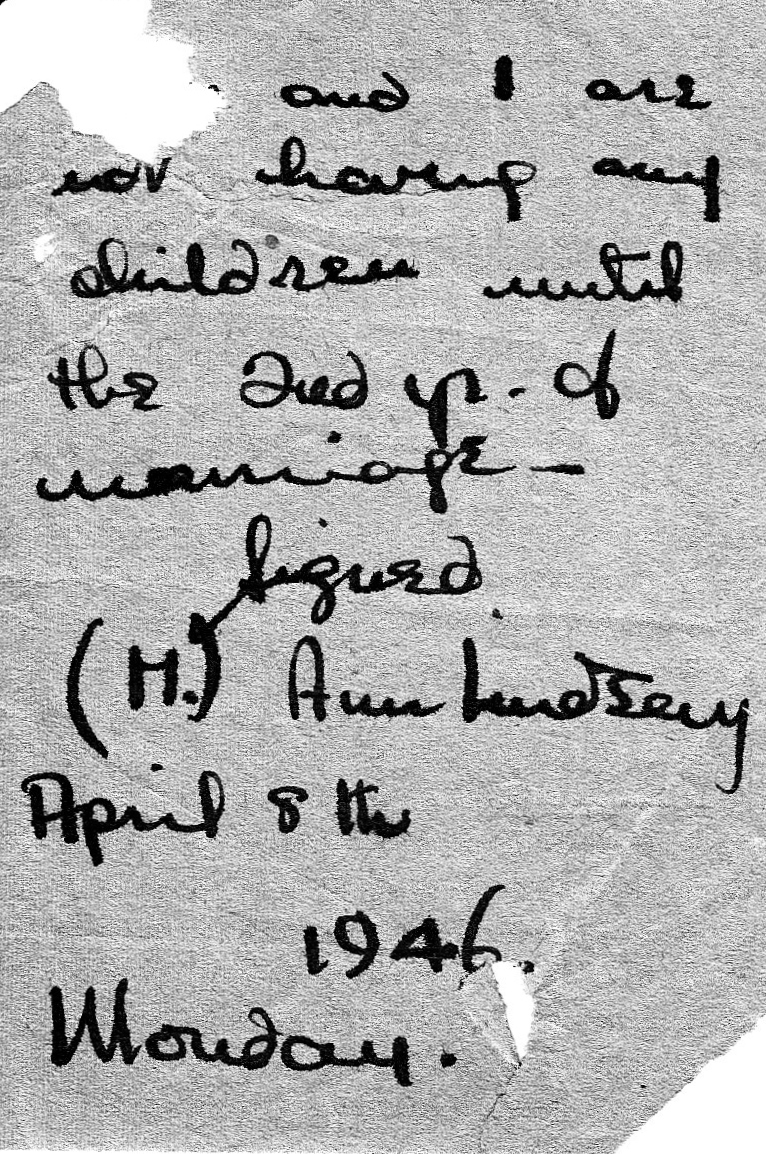 and I are
not having any
children until
the 2nd yr. of
marriage —
Signed
(H.) Ann Lindsey
April 8th
1946.
Monday.